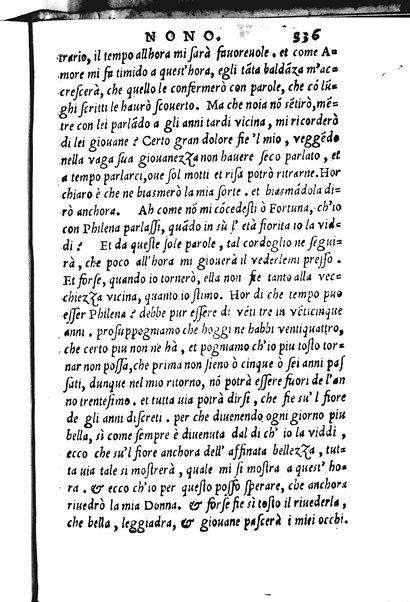 NONO. 336
trario, il tempo all'hora mi sarà fauoreuole. et come A-
more mi fu timido a quest'hora, egli tāta baldāza m'ac-
crescerà, che quello le confermerò con parole, che có lū-
ghi scritti le haurò scouerto. Ma che noia nó sētirò, mē-
tre con lei parlādo a gli anni tardi vicina, mi ricorderò
di lei giouane? Certo gran dolore fie 'l mio, veggēdo
nella vaga sua giouanezza non hauere seco parlato, et
a tempo parlarci, oue sol motti et risa potrò ritrarne. Hor
chiaro è che ne biasmerò la mia sorte. et biasmādola di-
rò anchora. Ah come nó mi cōcedesti ò Fortuna, ch'io
con Philena parlassi, quādo in sù l'età fiorita io la vid-
di? Et da queste sole parole, tal cordoglio ne segui-
rà, che poco all'hora mi giouerà il vederlemi presso.
Et forse, quando io tornerò, ella non fie tanto alla vec-
chiezza vicina, quanto io stimo. Hor di che tempo puo
esser Philena? debbe pur essere di vēti tre in vēticinque
anni. prosuppogniamo che hoggi ne habbi ventiquattro,
che certo piu non ne hà, et pogniamo ch'io piu tosto tor-
nar non possa, che prima non sieno ò cinque ò sei anni pas
sati, dunque nel mio ritorno, nó potrà essere fuori de l'an
no trentesimo. et tutta uia potrà dirsi, che fie su'l fiore
de gli anni discreti. per che diuenendo ogni giorno piu
bella, sì come sempre è diuenuta dal di ch'io la viddi,
ecco che su'l fiore anchora dell'affinata bellezza, tut-
ta uia tale si mostrerà, quale mi si mostra a quest' ho-
ra. & ecco ch'io per questo posso sperare, che anchora
riuedrò la mia Donna. & forse fie sì tosto il riuederla,
che bella, leggiadra, & giouane pascerà i miei occhi.